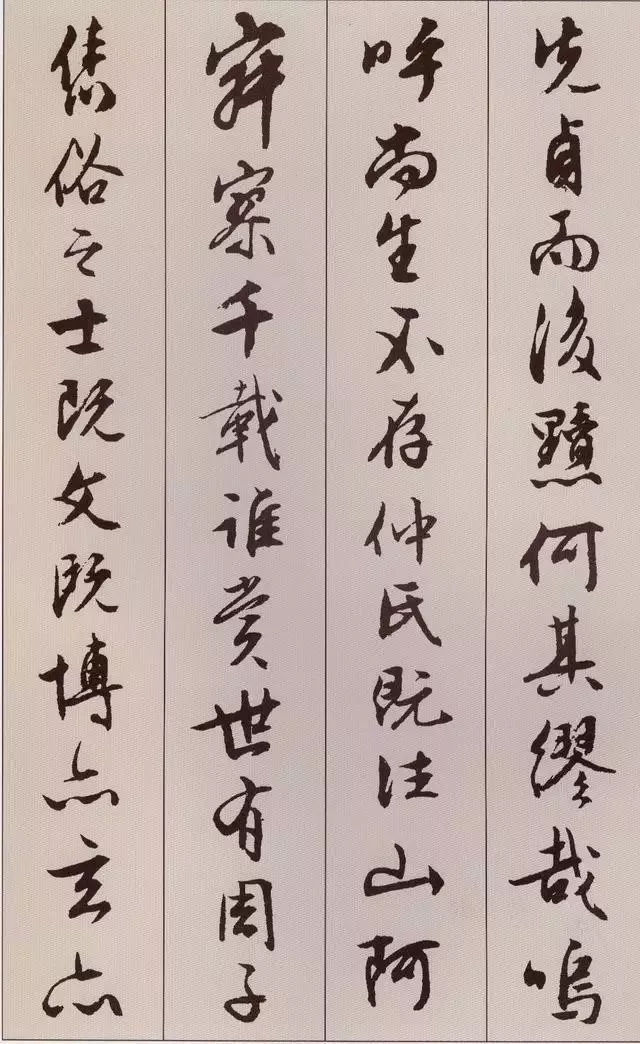 先貞而後黷何其繆哉嗚
呼尚生不存仲氏既往山阿
寂寥千載誰賞世有周子
雋俗之士既文既博亦玄亦